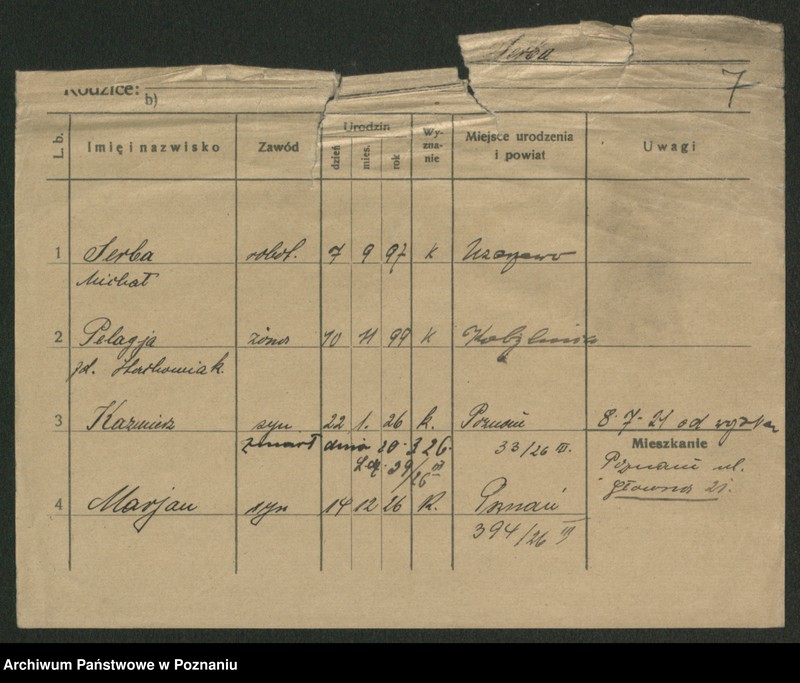 Serba
7
Rodzice:
b)
L. b. Imię i nazwisko Zawód Urodzin dzień mies. rok Wyznanie Miejsce urodzenia i powiat Uwagi
1 Serba robot. 7 9 97 K
Michał
2 Pelagja żona 10 11 99 K Kobylnica
zd. Stachowiak
3 Kazmierz syn 22 1. 26 k. Poznań 8.7.21 od
zmarł dnia 20.3.26. 33/26 III. Mieszkanie
39/26 III Poznań ul.
Głowna 21.
4 Marjan syn 14 12 26 k. Poznań
394/26 III
Archiwum Państwowe w Poznaniu